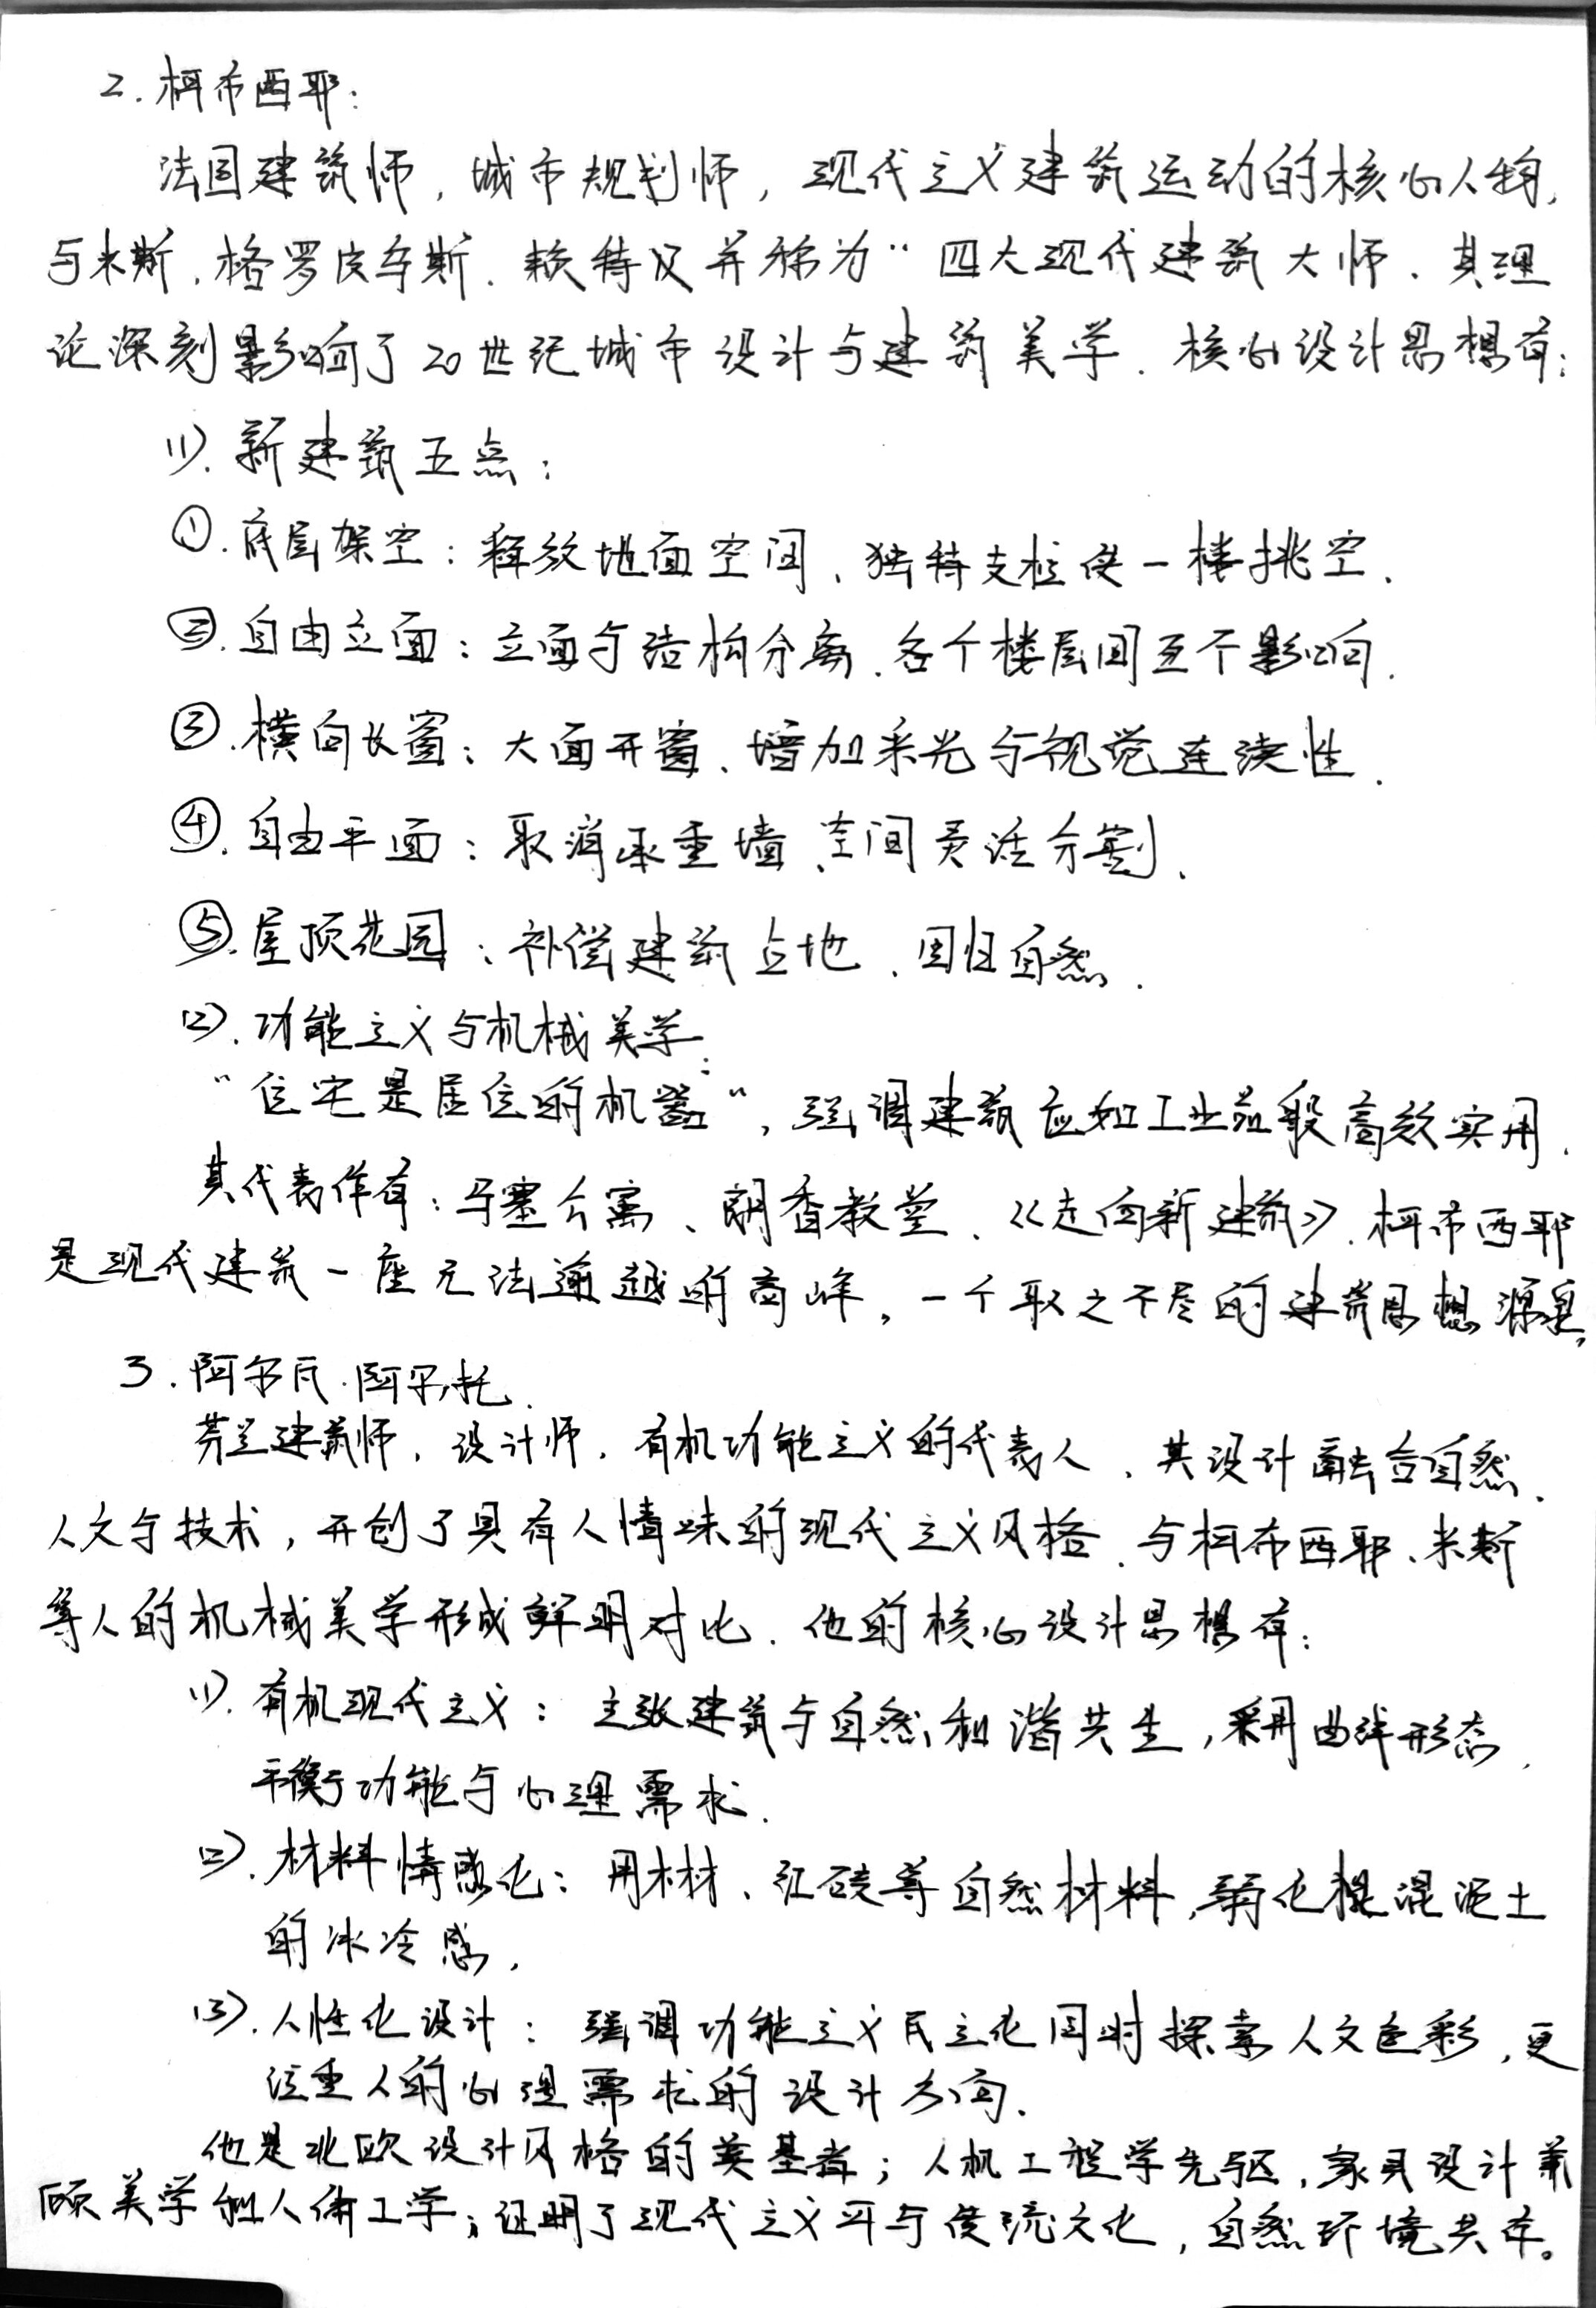 2. 柯布西耶:
法国建筑师, 城市规划师, 现代主义建筑运动的核心人物,
与米斯, 格罗皮乌斯. 赖特及并称为“四大现代建筑大师. 其理
论深刻影响了20世纪城市设计与建筑美学. 核心设计思想有:
(1). 新建筑五点:
①. 底层架空: 释放地面空间、独特支柱使一楼挑空.
②. 自由立面: 立面与结构分离. 各个楼层间互不影响.
③. 横向长窗: 大面开窗、增加采光与视觉连续性.
④. 自由平面: 取消承重墙、空间灵活分割.
⑤. 屋顶花园: 补偿建筑占地、回归自然.
(2). 功能主义与机械美学:
“住宅是居住的机器”, 强调建筑应如工业品般高效实用.
其代表作有: 马塞公寓、朗香教堂、《走向新建筑》. 柯布西耶
是现代建筑一座无法逾越的高峰, 一个取之不尽的建筑思想源泉,
3. 阿尔瓦·阿尔托.
芬兰建筑师, 设计师, 有机功能主义的代表人、其设计融合自然、
人文与技术, 开创了具有人情味的现代主义风格. 与柯布西耶、米斯
等人的机械美学形成鲜明对比. 他的核心设计思想有:
(1). 有机现代主义: 主张建筑与自然和谐共生, 采用曲线形态,
平衡了功能与心理需求.
(2). 材料情感化: 用木材、红砖等自然材料, 弱化混泥土
的冰冷感,
(3). 人性化设计: 强调功能主义民主化同时探索人文色彩, 更
注重人的心理需求的设计方向.
他是北欧设计风格的奠基者; 人机工程学先驱, 家具设计兼
顾美学和人体工学; 证明了现代主义可与传统文化, 自然环境共存。